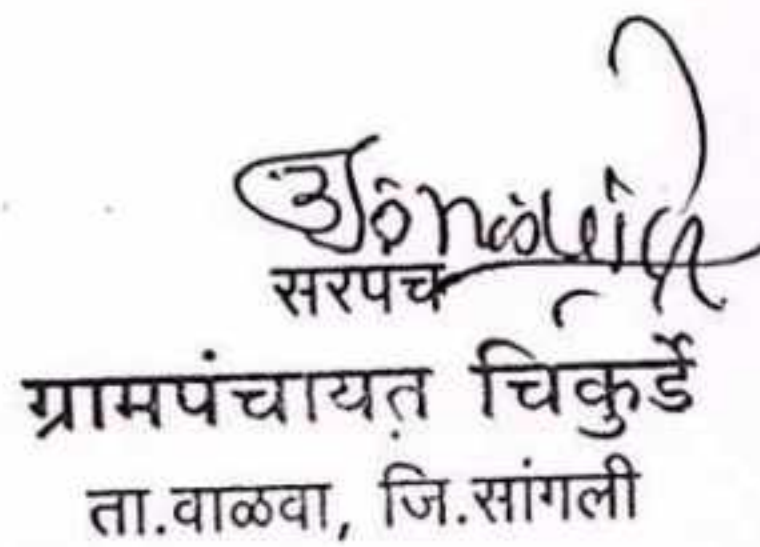 सरपंच
ग्रामपंचायत चिकुर्डे
ता.वाळवा, जि.सांगली